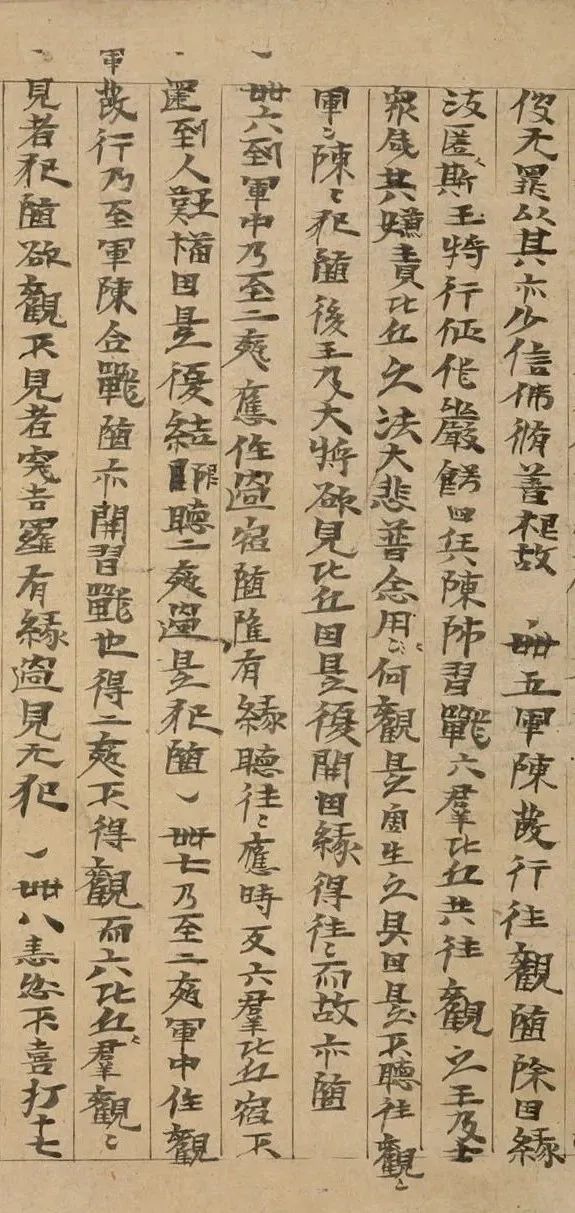 伇无罪以其亦少信佛脩善根故 丶卌五軍陳發行往觀隨除因緣
波匿斯王將行征伐嚴餝四兵陳師習戰六羣比丘共往觀之王及士
衆咸共嫌責比丘之法大悲普念用何觀是煞生之具因是不聽往觀
軍陳犯隨後王及大將欲見比丘因是復開因緣得往而故亦隨
卌六到軍中乃至二夜應住過宿隨唯有緣聽往應時反六羣比丘宿不
還到人難惱因是復結限聽二夜過是犯隨 卌七乃至二夜軍中住觀
軍發行乃至軍陳合戰隨亦開習戰也得二夜不得觀而六比丘羣觀
見者犯隨欲觀不見者突吉羅有緣過見无犯 卌八恚忿不喜打七